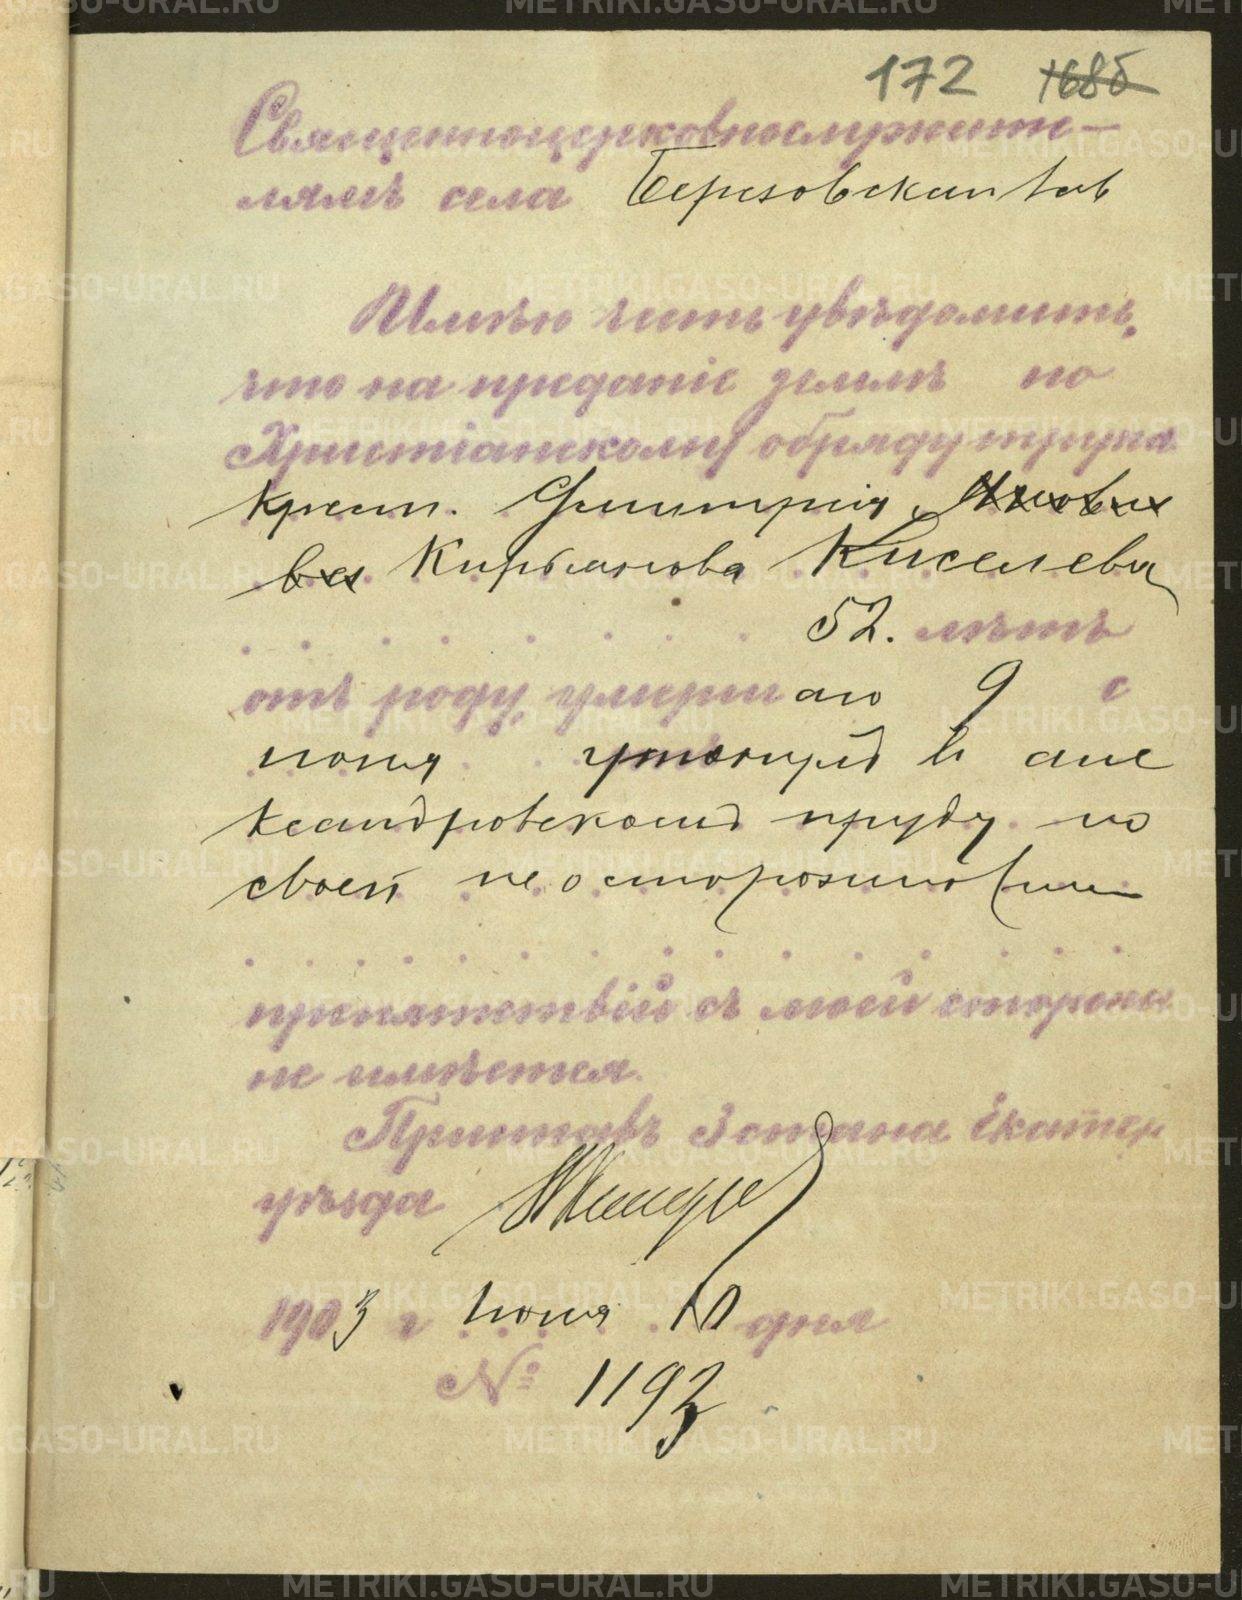 172 168б
Священноцерковнослужите-
лямъ села Березовскаго зав
Имѣю честь увѣдомить,
что на преданіе землѣ по
Христіанскому обряду трупа
Крест. Димитрія Яковл
ва Кирьякова Киселева
52. лѣтъ
отъ роду, умершаго 9 с
іюня утонувш в Але
ксандровскомъ пруду по
своей неосторожности
препятствій съ моей стороны
не имѣется.
Приставъ 3 стана Екатер
уѣзда
1903 г Іюня 10 дня
№ 1193
METRIKI.GASO-URAL.RU